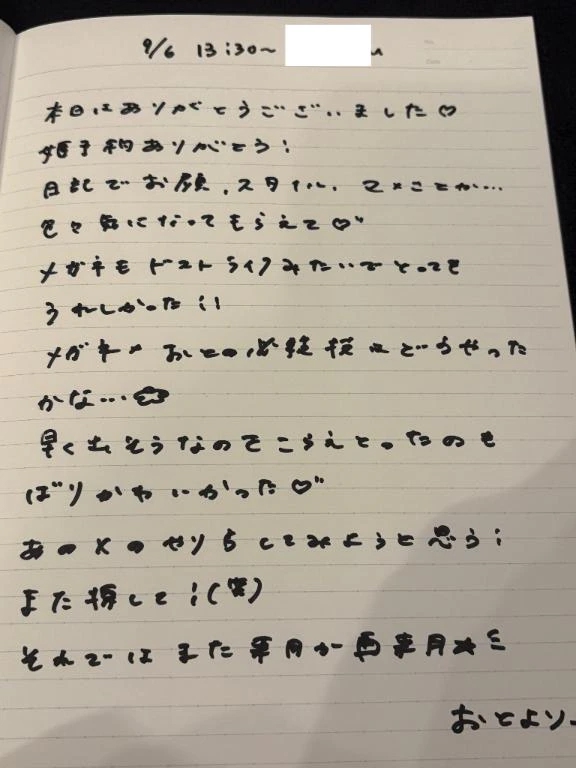 9/6 13:30~
本日はありがとうございました♡
姫予約ありがとう!
日記でお顔、スタイル、マメことか…
色々気になってもらえて♡
メガネもドストライクみたいでとっても
うれしかった!!
メガネ×おとの必殺技はどうやった
かな…
早く出そうなのでこらえとったのも
ばりかわいかった♡
あの×のやりちしてみようと思う!
また探して!(笑)
それではまた来月か再来月★
おとよりー